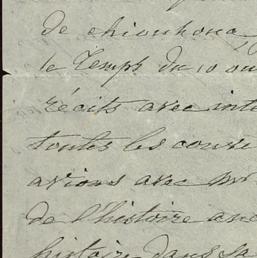 de chiouhoua,
le Temps du 10 ou
récits avec inté
toutes les cour
avions avec Mr
de l'histoire anc
histoire dans sa